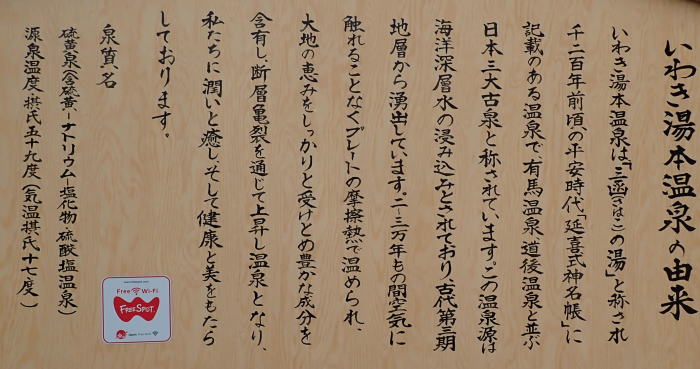 いわき湯本温泉の由来
いわき湯本温泉は、「三函(さはこ)の湯」と称され
千二百年前頃の平安時代「延喜式神名帳」に
記載のある温泉で、有馬温泉、道後温泉と並ぶ
日本三大古泉と称されています。この温泉源は
海洋深層水の浸み込みとされており、古代第三期
地層から湧出しています。二~三万年もの間空気に
触れることなくプレートの摩擦熱で温められ、
大地の恵みをしっかりと受けとめ豊かな成分を
含有し、断層亀裂を通じて上昇し温泉となり、
私たちに潤いと癒し、そして健康と美をもたら
しております。
泉質名
硫黄泉(含硫黄-ナトリウム-塩化物・硫酸塩温泉)
源泉温度・摂氏五十九度(気温摂氏十七度)
Free Wi-Fi
FREESPOT